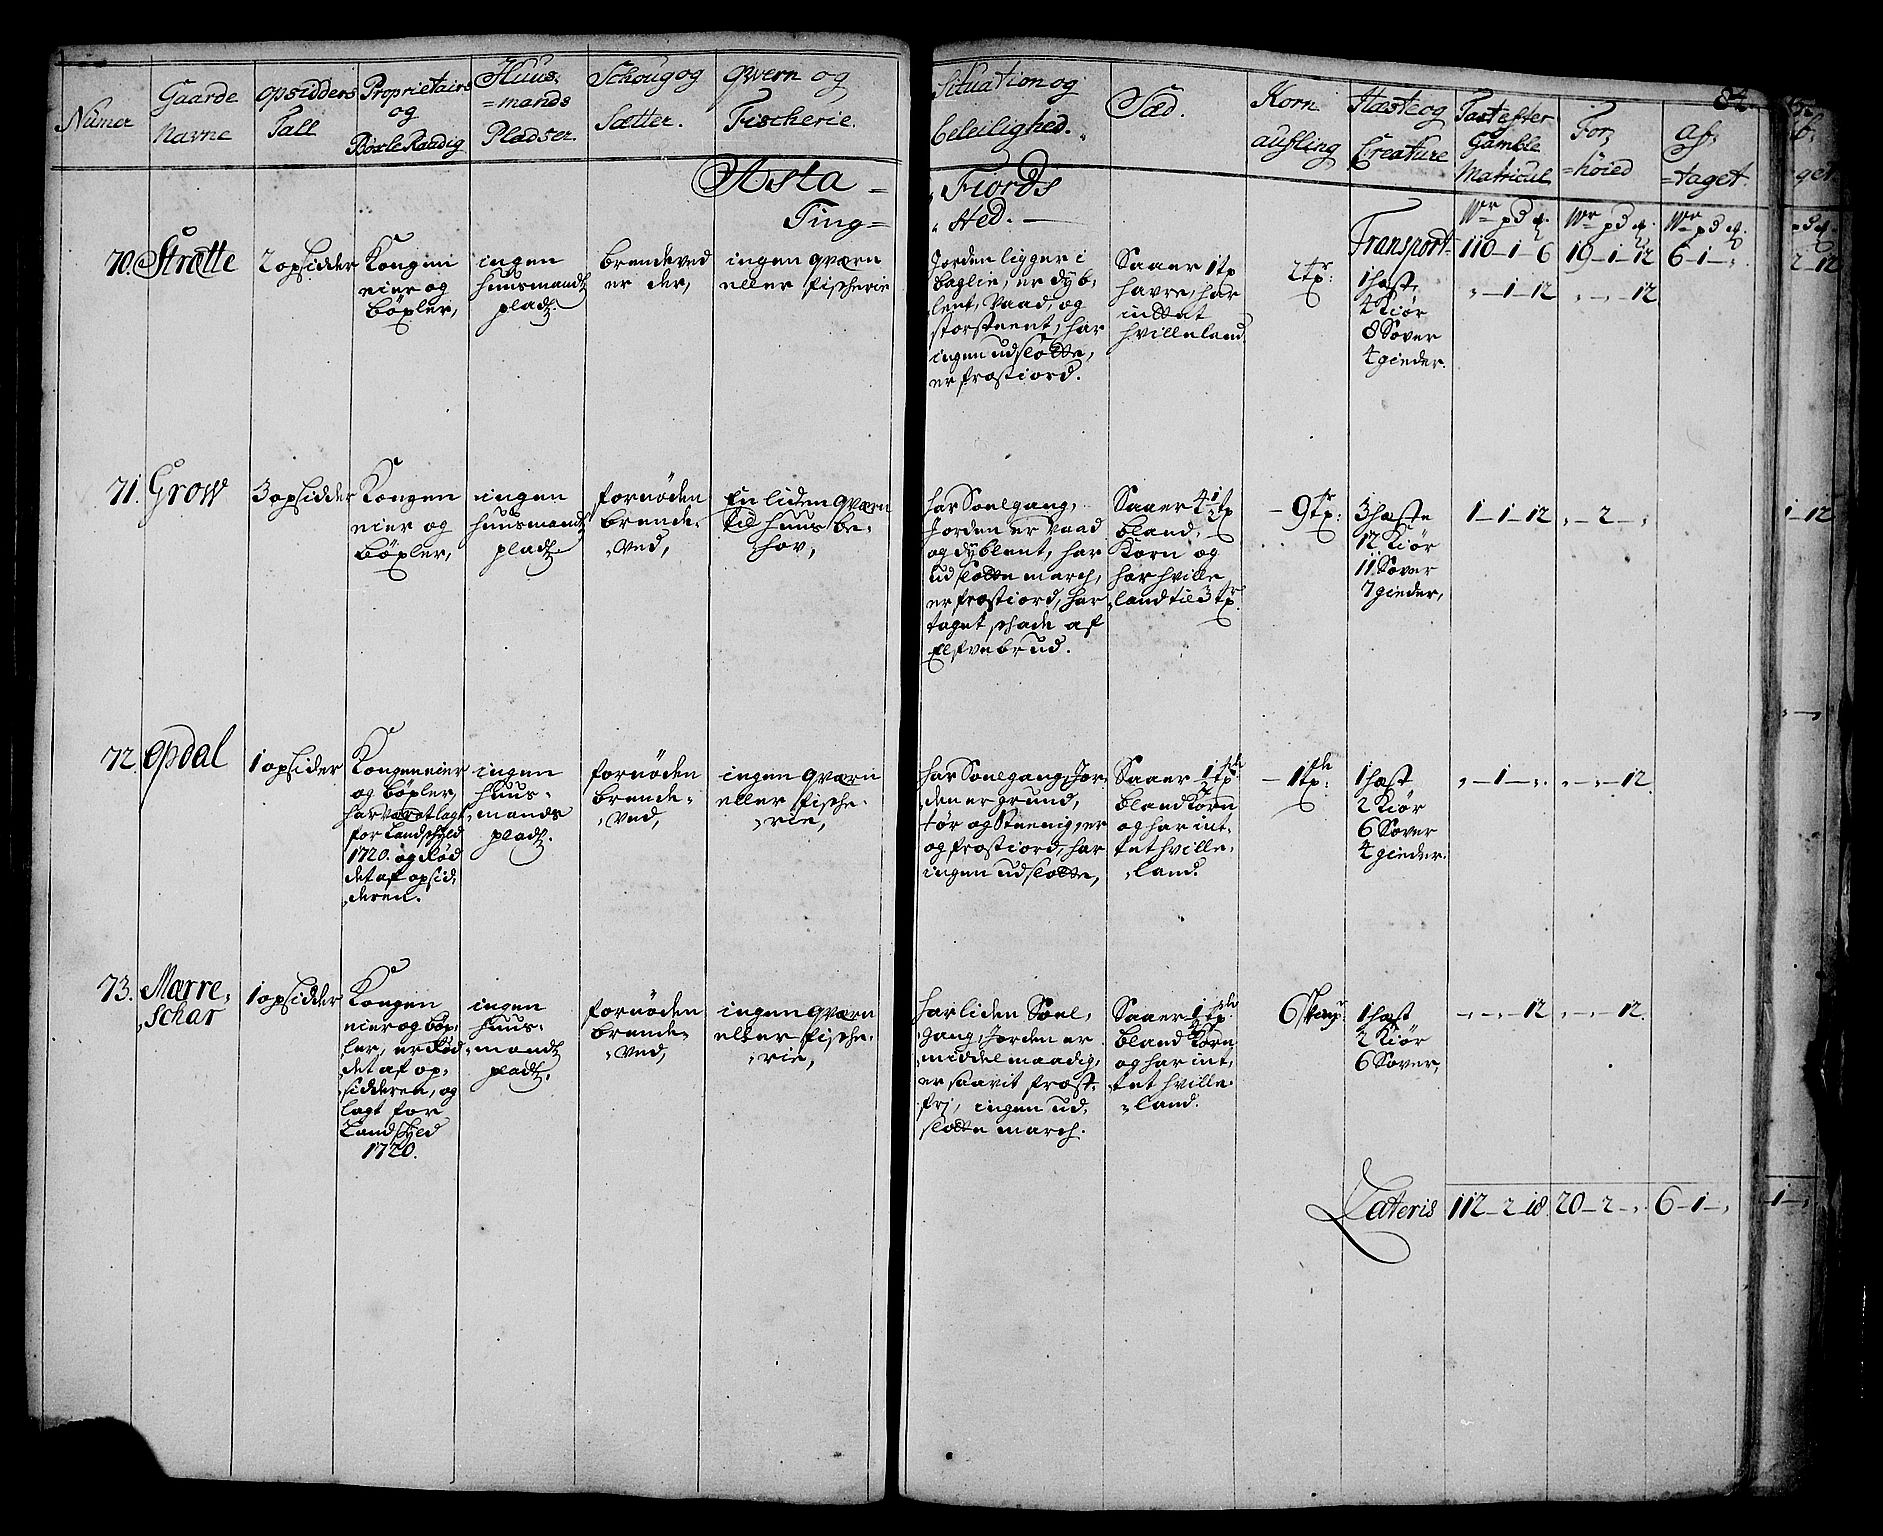 84.
Numer
Gaarde
Navne
Opsidders
Tall
Proprietairs
og
Böxle Raadig
Huus-
=mands
Pladser.
Schoug og
Sætter.
Qvern og
Fischerie.
Situation og
beleilighed.
Sæd.
Korn
aufling
Hæste og
Creature
Taxt efter
Gamble
Matricul
For-
=höied
Af-
=taget.
Asta -
Ting=
Fiords
Sted. —
Wr pd q.
Wr pd q.
Wr pd q.
Transport. 110-1-6 19-1-12 6-1-„
70. Strætte
2 opsidder
Kongen
eier og
böxler,
ingen
huusmands
pladz.
brendeved
er der,
ingen qværn
eller fischerie
Jorden ligger i
baglie, er dyb-
lent, Vaad, og
storsteent, har
ingen udslotte,
er frostiord.
Saaer 1 tp
havre, har
inttet
hvilleland
2 tr:
1 hæst,
4 Kiör
8 Sover
4 gieder.
„-1-12
„-„-12
71. Grow
3 opsidder
Kongen
eier og
böxler,
ingen
huusmands
pladz.
fornöden
brende-
ved,
En liden qværn
til huus be-
hov,
har Soelgang,
Jorden er Vaad
og dyblent, har
udslotte march,
er frostiord, har
taget schade af
Elfvebrud.
Saaer 4 1/2 tp
bland-
Korn og
har hville
land til 3 tp.
- 9 tr:
3 hæste
12 Kiör
11 Sover
7 gieder,
1-1-12
„-2-„
72. Opdal
1 opsider
Kongen eier
og böxler,
har været lagt
for Landschyld
1720. og Röd
det af opsid-
deren.
ingen
huus-
mands
pladz.
fornöden
brende-
ved,
ingen qværn
eller fische-
rie,
har Soelgang, Jor-
den er grund,
tör og steenig, er
og frostiord, har
ingen udslotte,
Saaer 1 tp
bland Korn
og har int-
tet hville-
land.
- 1 tp:
1 hæst
2 Kiör
6 Sover
4 gieder.
„-1-„
„-„-12.
73. Marre-
schar
1 opsidder
Kongen
eier og böx-
ler, er Röd
det af op-
sidderen, og
lagt for
Landschyld
1720.
ingen
huus-
mands
pladz.
fornöden
brende-
ved,
ingen qværn
eller fische-
rie,
har liden Soel-
gang, Jorden er
middelmaadig,
er saavit frost-
fri, ingen ud-
slotte march.
Saaer 1 tp
bland Korn
og har int-
tet hville-
land.
6 skiep
1 hæst
2 Kiör
6 Sover,
-„-„-12
„-„-12.
Lateris 112-2-18 20-2-„ 6-1-„